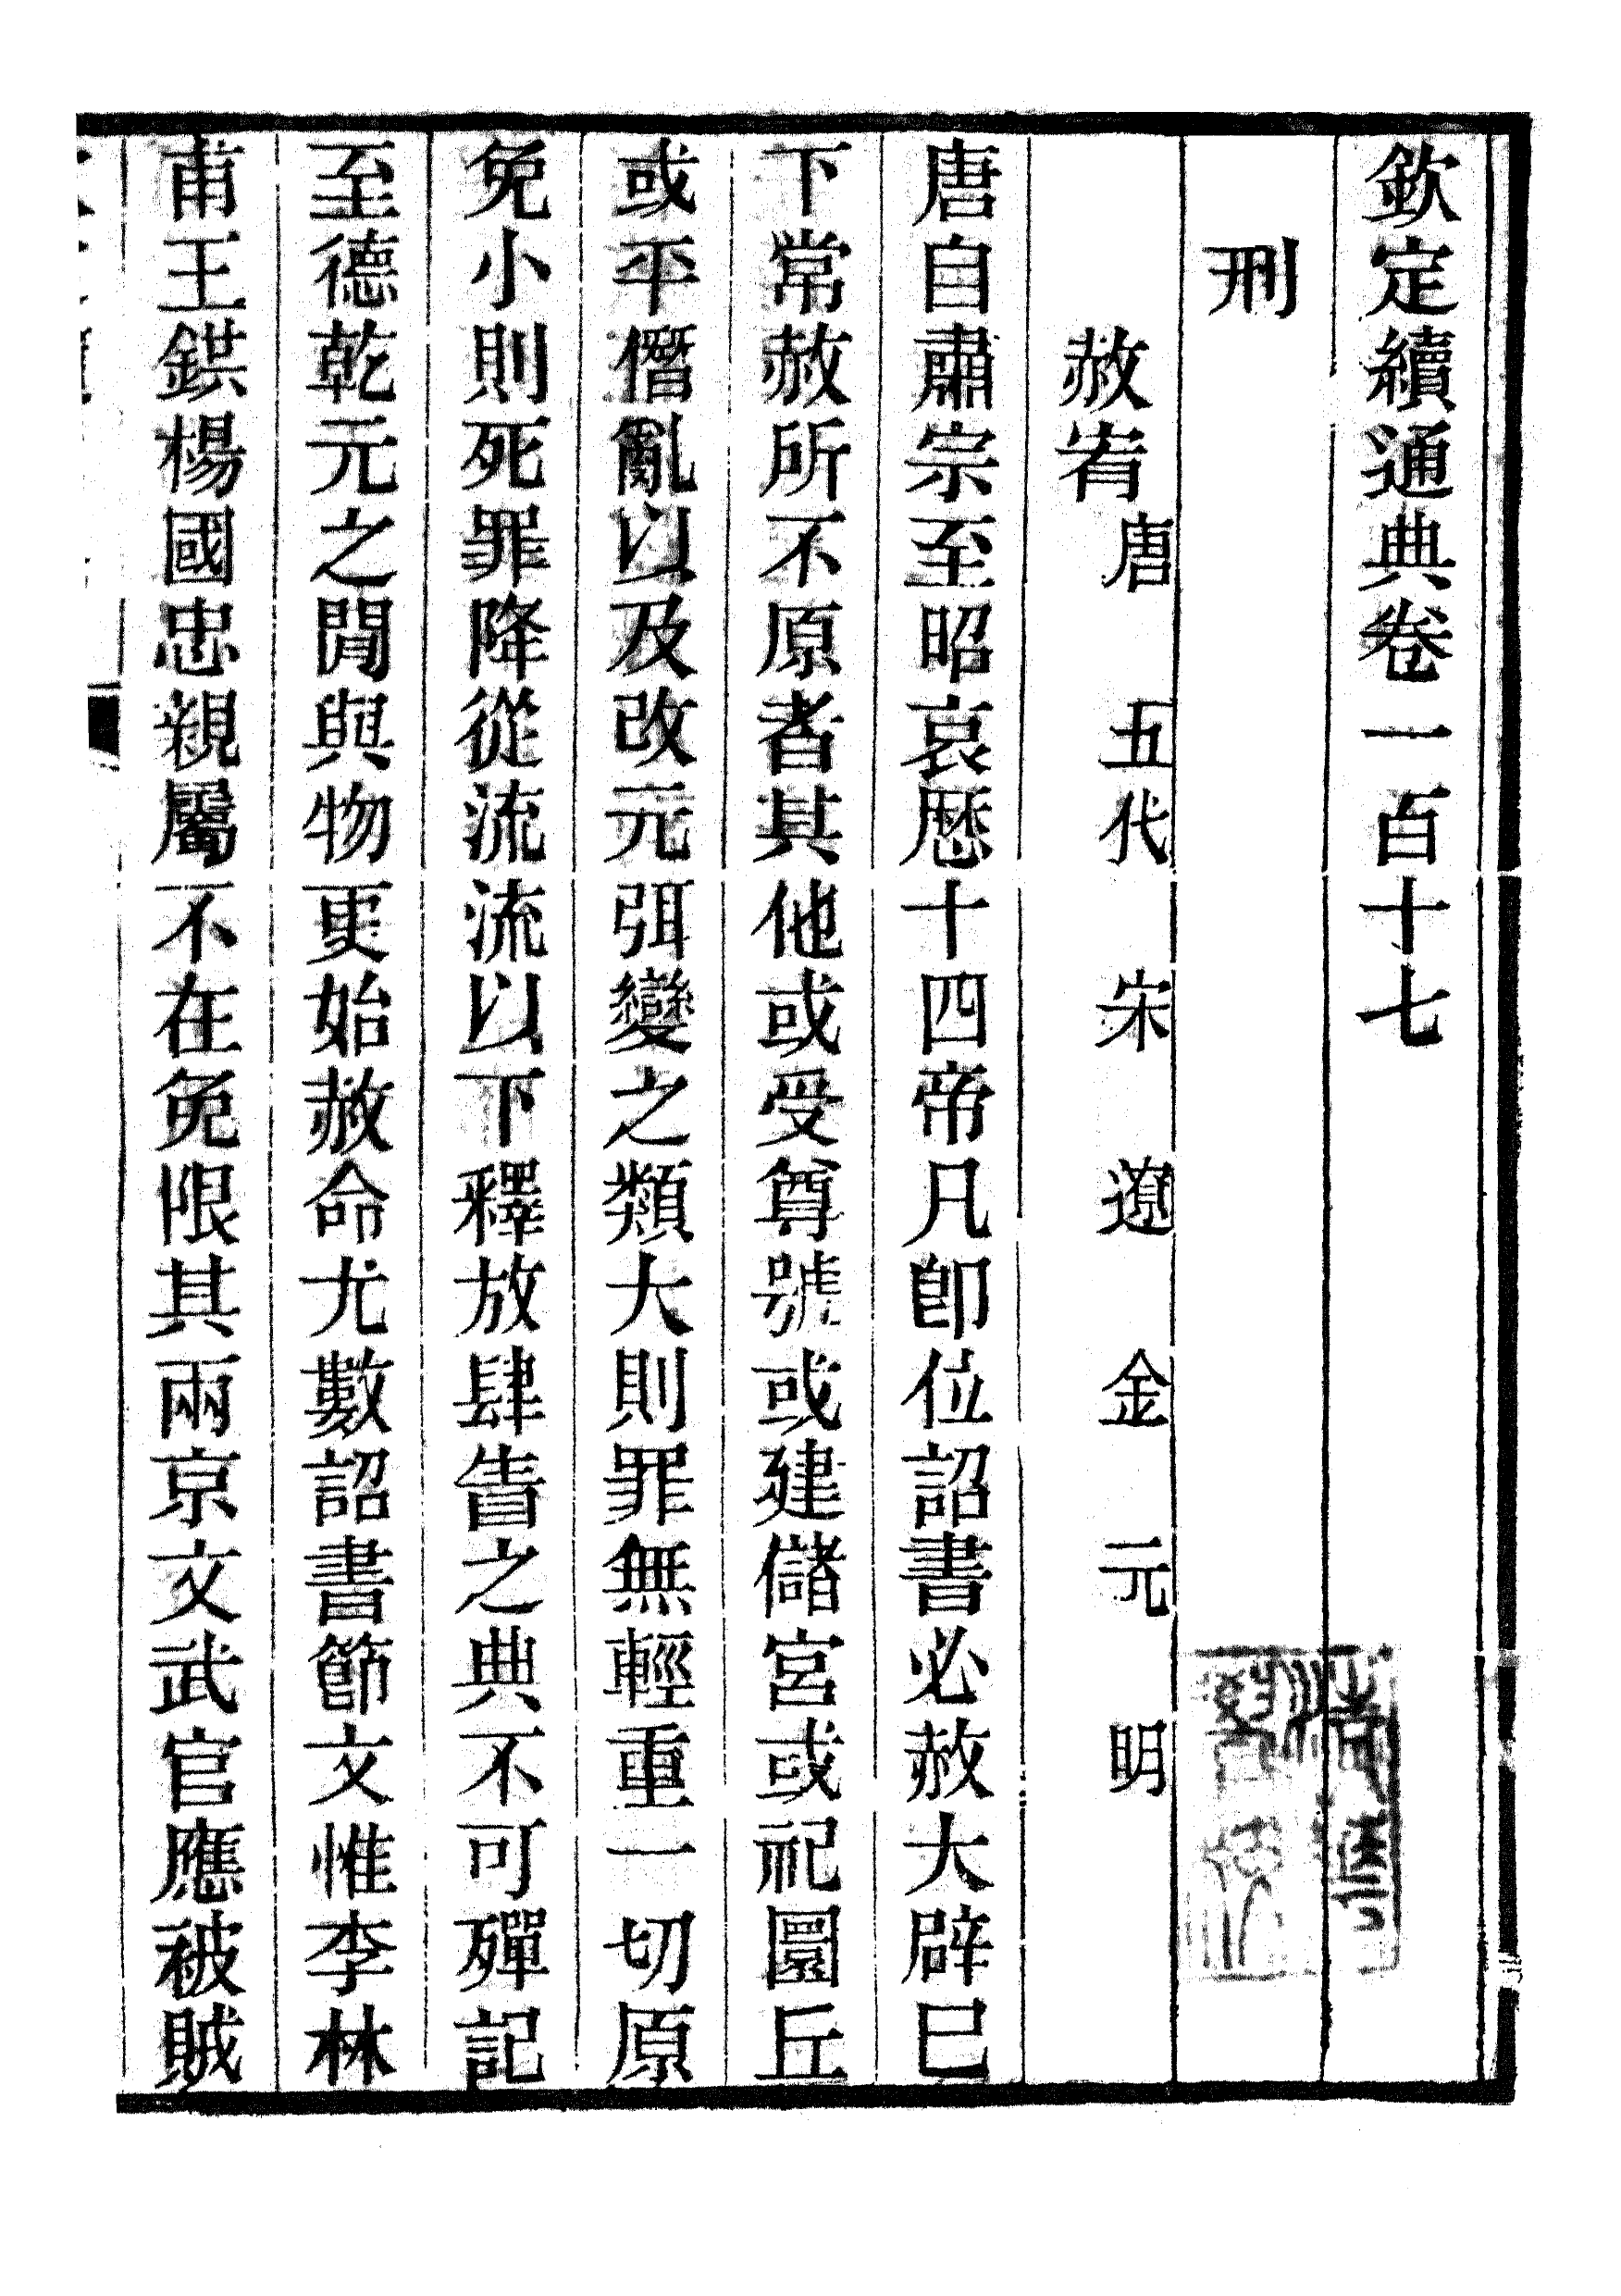 欽定續通典卷一百十七
刑
赦宥 唐 五代 宋 遼 金 元 明
唐自肅宗至昭哀歷十四帝凡卽位詔書必赦大辟巳
下常赦所不原者其他或受尊號或建儲宮或祀圜丘
或平僭亂以及改元弭變之類大則罪無輕重一切原
免小則死罪降從流流以下釋放肆眚之典不可殫記
至德乾元之閒與物更始赦命尤數詔書節文惟李林
甫王鉷楊國忠親屬不在免限其兩京文武官應被賊